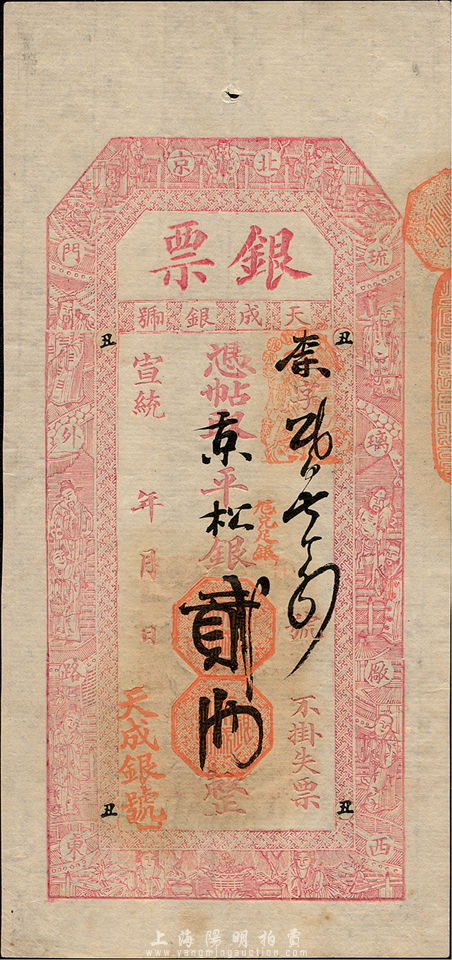 北京
琉璃廠西
門外路東
銀票
天成銀號
丑
丑
字
號
不掛失票
憑帖取京平松銀貳兩整
宣統
年月日
天成銀號
丑
丑
上海陽明拍賣
www.yangmingauction.com